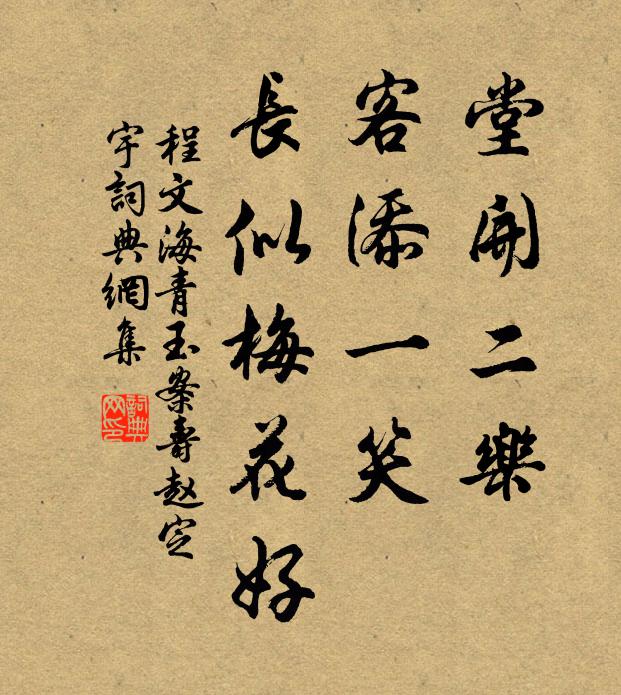 堂開二樂
客添一笑
長似梅花好
程文海青玉案壽赵定
宇詞典網集
詞典
网印